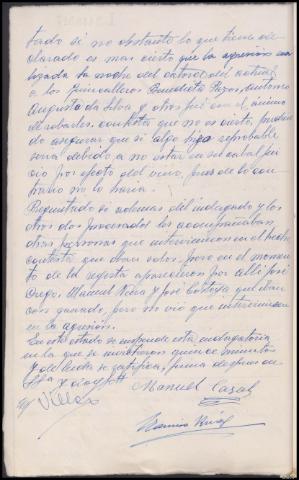 tado si no obstante lo que tiene de-
clarado es mas cierto que la agresion rea-
lizada la noche del catorce del actual
a los quincalleros Benedicto Pazos, Antonio
Augusto da Silva y otros fué con el animo
de robarles, contesta que no es cierto, pudien-
do asegurar que si algo hizo reprobable
seria debido a no estar en su cabal jui-
cio por efecto del vino, pues de lo con-
trario no lo haria.
Preguntado si ademas del indagado y los
otros dos procesados les acompañaban
otras personas que interviniesen en el hecho
contesta que otras solos, pero en el momen-
to de la reyerta aparecieron por alli José
Orge, Manuel Neira y José
con ganado, pero no vió que interviniesen
en la agresion.
En este estado se suspende esta indagatoria
en la que se invirtieron quince minutos
y de leida se ratifica, firma despues de
Sª y doy fe
Manuel Casal
Ramiro